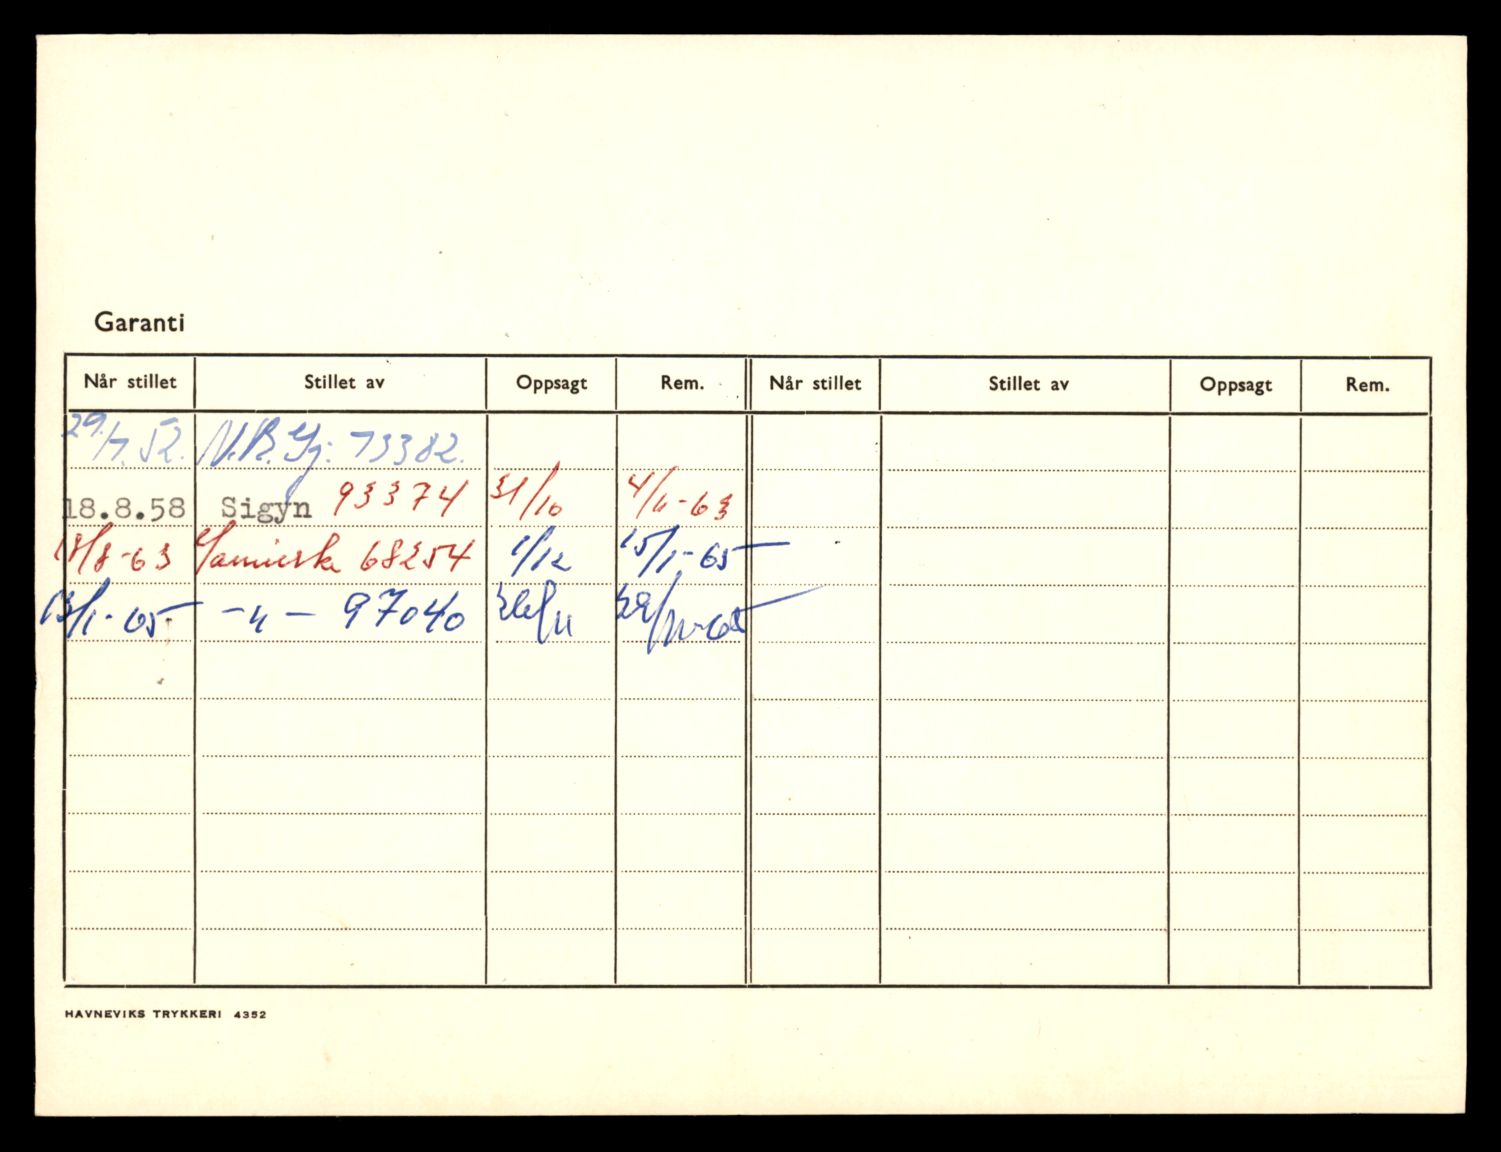 Garanti
Når stillet Stillet av Oppsagt Rem. Når stillet Stillet av Oppsagt Rem.
29/7.52. N.B.Gj: 73382.
18.8.58 Sigyn 93374 31/10 4/11-63
/8-63 Samvirke 68254 1/12 15/1-65
13/1-65 -"- 97040 /11
HAVNEVIKS TRYKKERI 4352